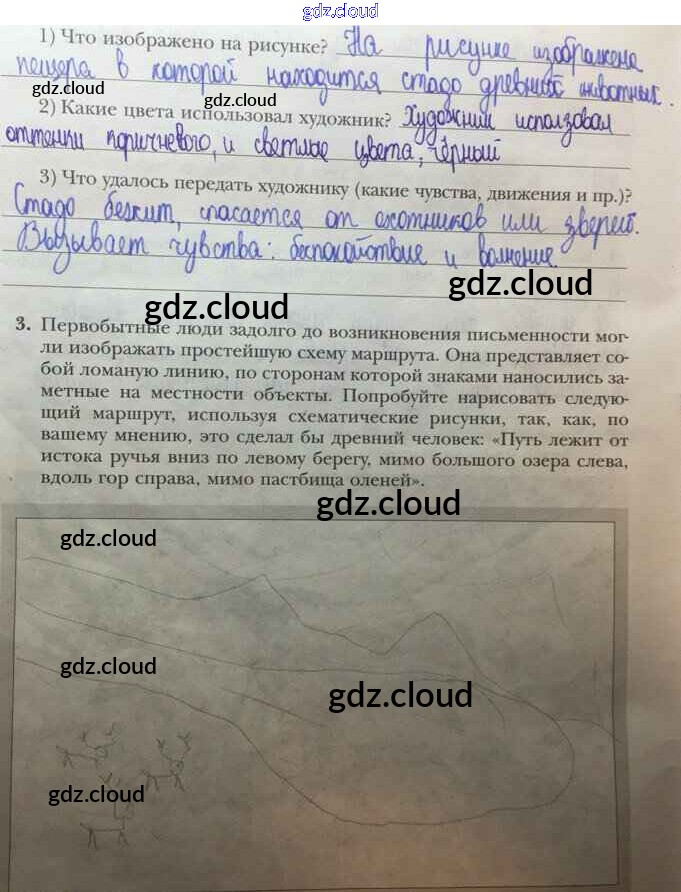 gdz.cloud
1) Что изображено на рисунке? На рисунке изображена
пещера в которой находится стадо древних животных.
gdz.cloud
gdz.cloud
2) Какие цвета использовал художник? Художник исползовал
оттенки коричневого, и светлые цвета, чёрный
3) Что удалось передать художнику (какие чувства, движения и пр.)?
Стадо бежит, спасается от охотников или зверей.
Вызывает чувства: беспокойствие и волнение
gdz.cloud
gdz.cloud
3. Первобытные люди задолго до возникновения письменности мог-
ли изображать простейшую схему маршрута. Она представляет со-
бой ломаную линию, по сторонам которой знаками наносились за-
метные на местности объекты. Попробуйте нарисовать следую-
щий маршрут, используя схематические рисунки, так, как, по
вашему мнению, это сделал бы древний человек: «Путь лежит от
истока ручья вниз по левому берегу, мимо большого озера слева,
вдоль гор справа, мимо пастбища оленей».
gdz.cloud
gdz.cloud
gdz.cloud
gdz.cloud
gdz.cloud